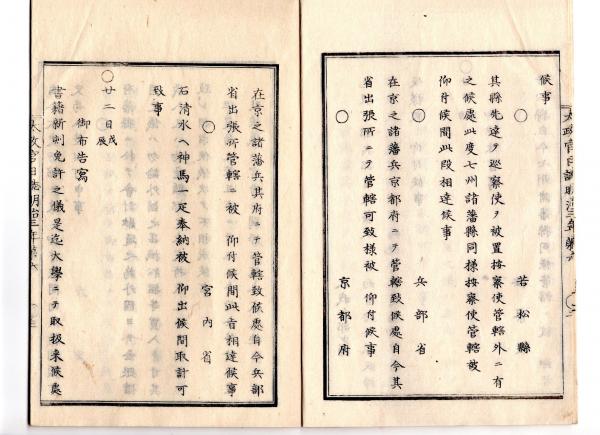 候事
若松縣
其縣先達ヲ巡察使ヲ被置按察使管轄外ニ有
之候處此度七州諸藩縣同様按察使管轄被
仰付候間此段相達候事
○ 兵部省
在京之諸藩兵京都府ニテ管轄致候處自今其
省出張所ニテ管轄可致様被 仰付候事
○ 京都府
在京之諸藩兵其府ニテ管轄致候處自今兵部
省出張所管轄ニ被 仰付候間此旨相達候事
○ 宮内省
石清水ヘ神馬一疋奉納被 仰出候間取計可
致事
○廿二日戊辰
御布告寫
書籍新刻免許之儀是迄大學ニテ取扱来候處
太政官日誌明治三年第六